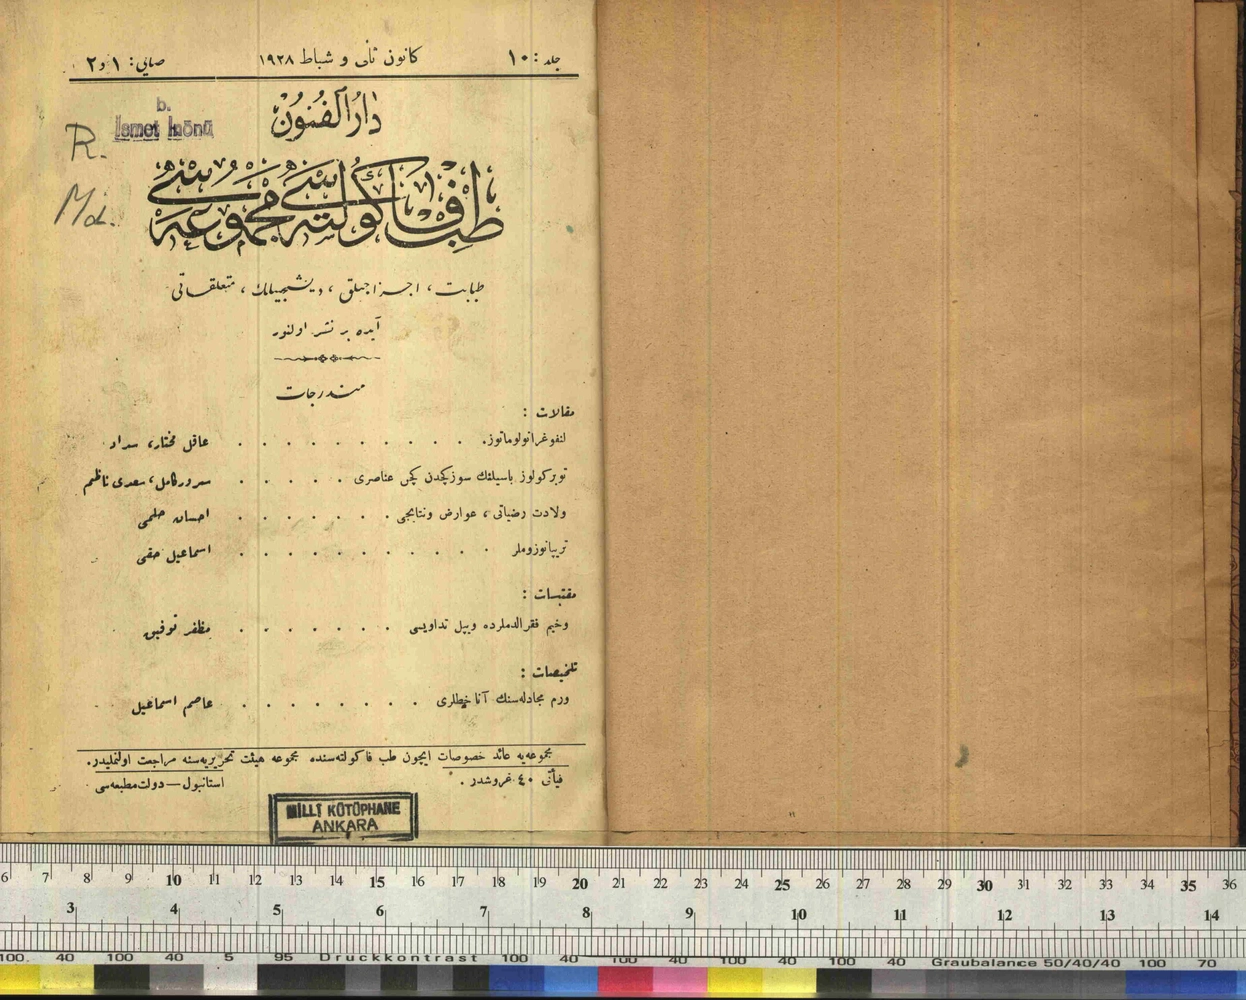 جلد : ١٠ كانون ثانی و شباط ١٩٢٨ صایی: ١ و ٢
b.
İsmet İnönü
R.
Md.
دار الفنون
طب فاكولته سی مجموعه سی
طبابت ، اجزاجیلق ، دیشجیلك ، متعلقاتی
آیده بر نشر اولنور
مندرجات
مقالات :
لنفوغرانولوماتوز. . . . . . . . . . . عاقل مختار، سداد
توبركولوز باسیلنك سوزكجدن كچن عناصری . . . . . سرور كامل، سعدی ناظم
ولادت رضیاتی ، عوارض ونتایجی . . . . . . . احسان حلمی
تریپانوزوملر . . . . . . . . . . . اسماعیل حقی
مقتبسات :
وخیم فقرالدملرده ویپل تداویسی . . . . . . . مظفر توفیق
تلخیصات :
ورم مجادله‌سنك آنا خطلری . . . . . . . عاصم اسماعیل
مجموعه‌یه عائد خصوصات ایچون طب فاكولته‌سنده مجموعه هیئت تحریریه‌سنه مراجعت اولنملیدر.
فیأتی ٤٠ غروشدر .
استانبول — دولت مطبعه‌سی
MİLLÎ KÜTÜPHANE
ANKARA
6 7 8 9 10 11 12 13 14 15 16 17 18 19 20 21 22 23 24 25 26 27 28 29 30 31 32 33 34 35 36
3 4 5 6 7 8 9 10 11 12 13 14
100 40 100 40 5 95 Druckkontrast 100 40 100 40 100 40 100 40 Graubalance 50/40/40 100 70